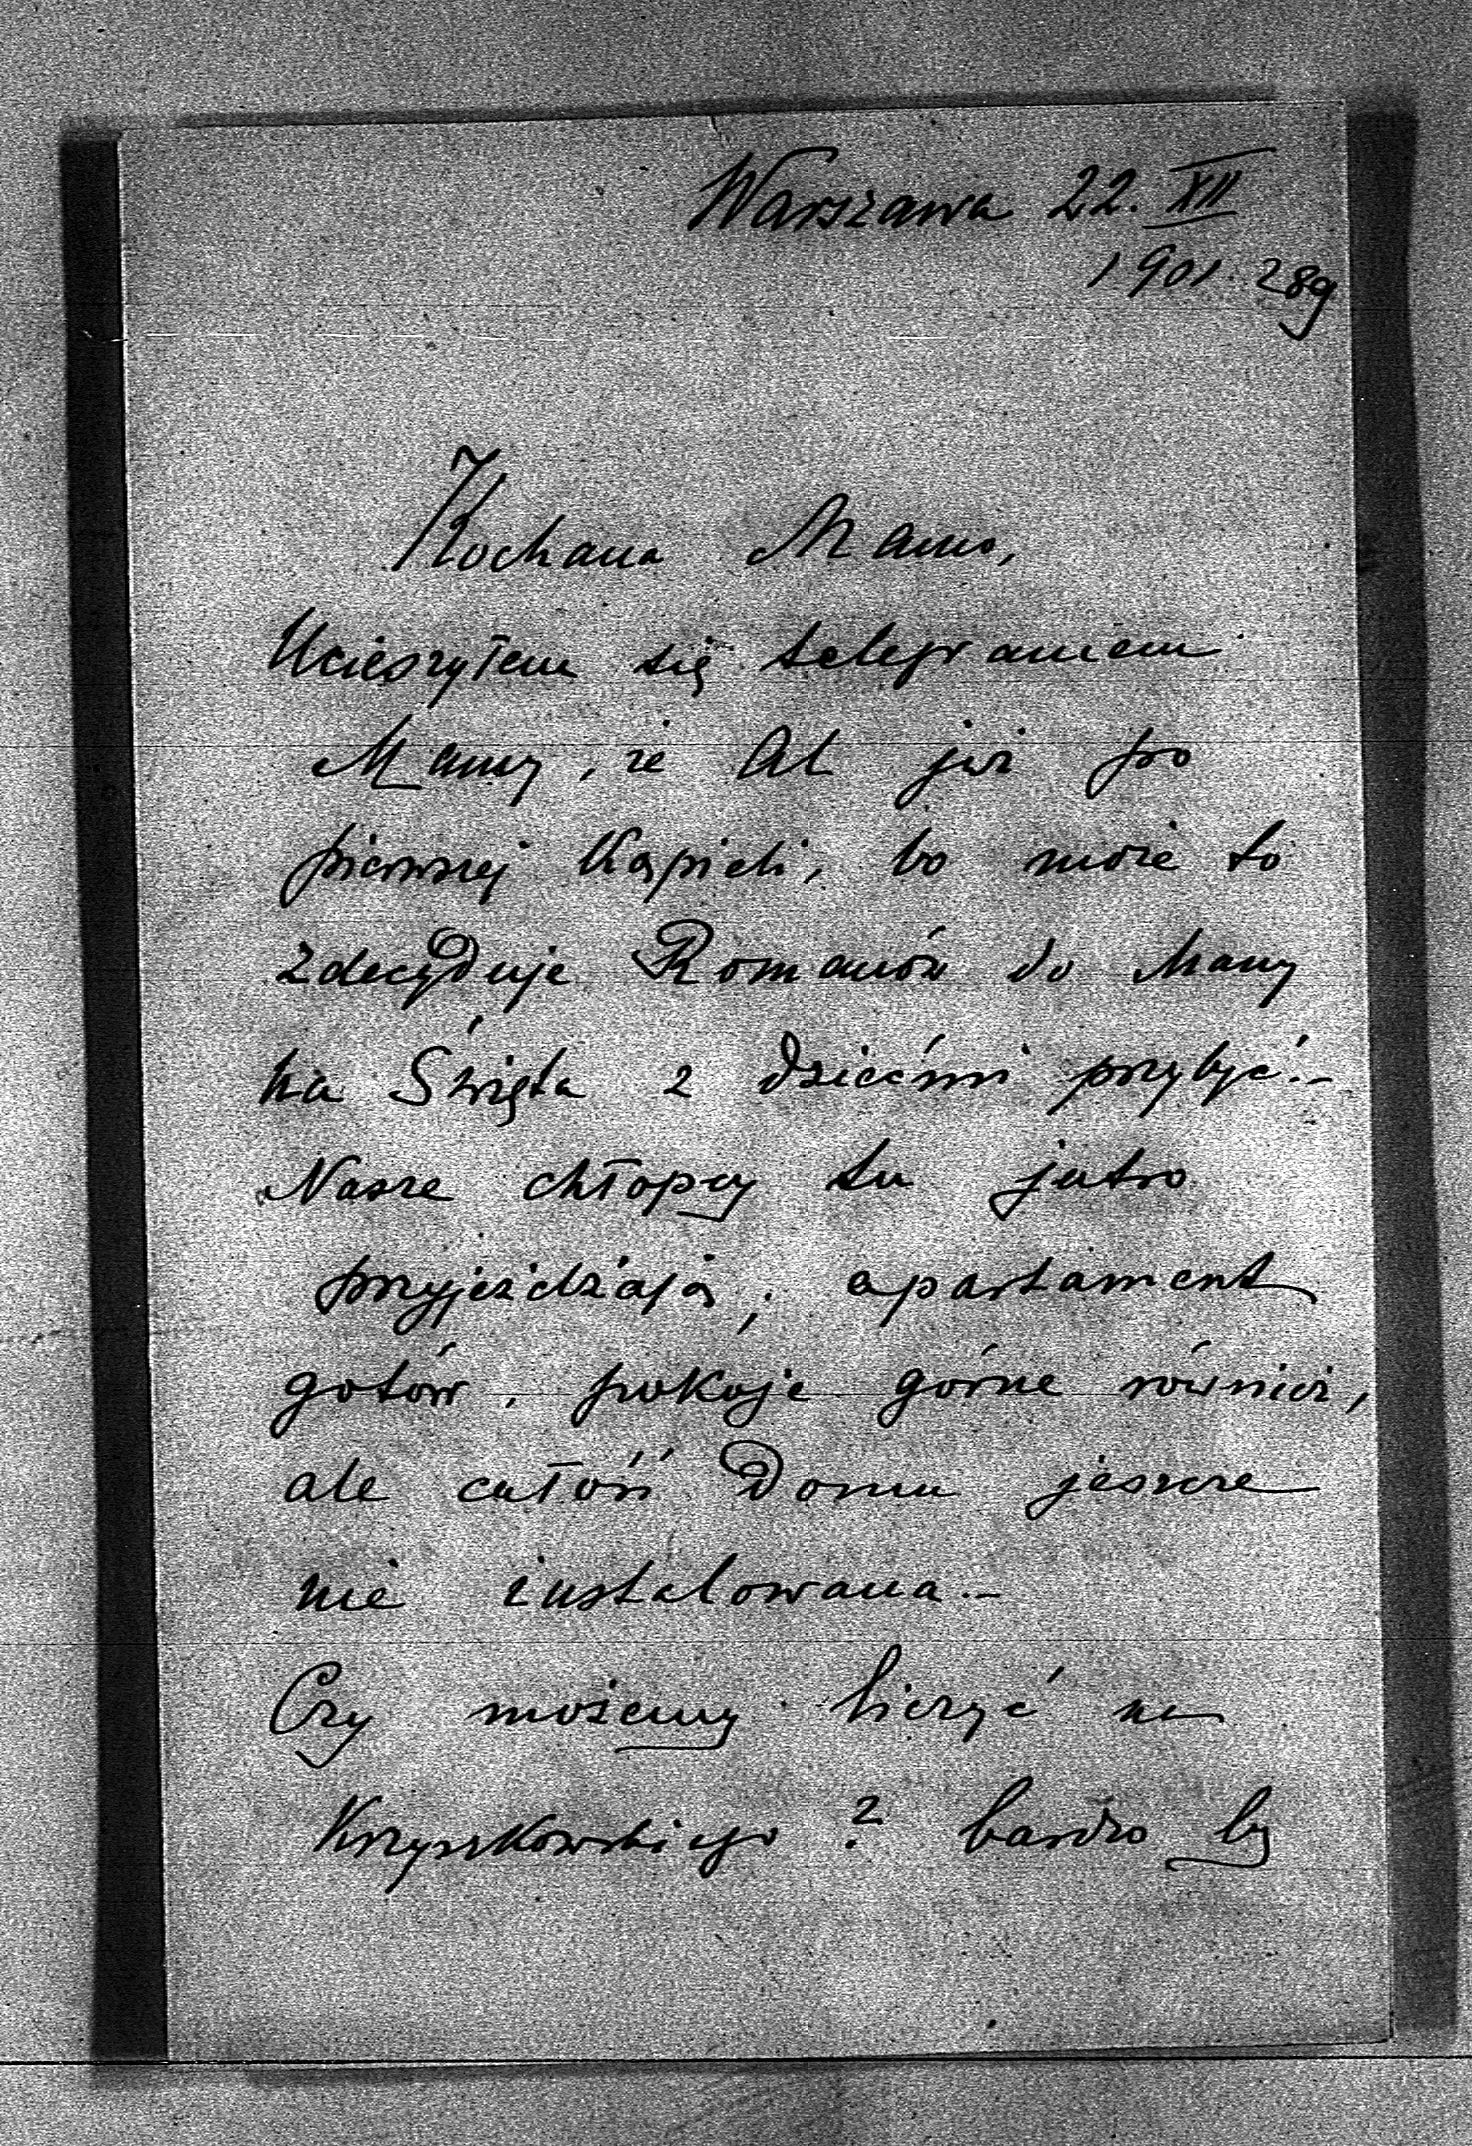 Warszawa 22. XII
1901. 289
Kochana Mamo,
Ucieszyłem się telegramem
Mamy, że Al już po
pierwszej kąpieli, bo może to
zdecyduje Romanów do Mamy
na Święta z dziećmi przybyć.–
Nasze chłopcy tu jutro
przyjeżdżają, apartament
gotów, pokoje górne również,
ale całość Domu jeszcze
nie instalowana.–
Czy możemy liczyć na
Krzyszkowskiego? bardzo by